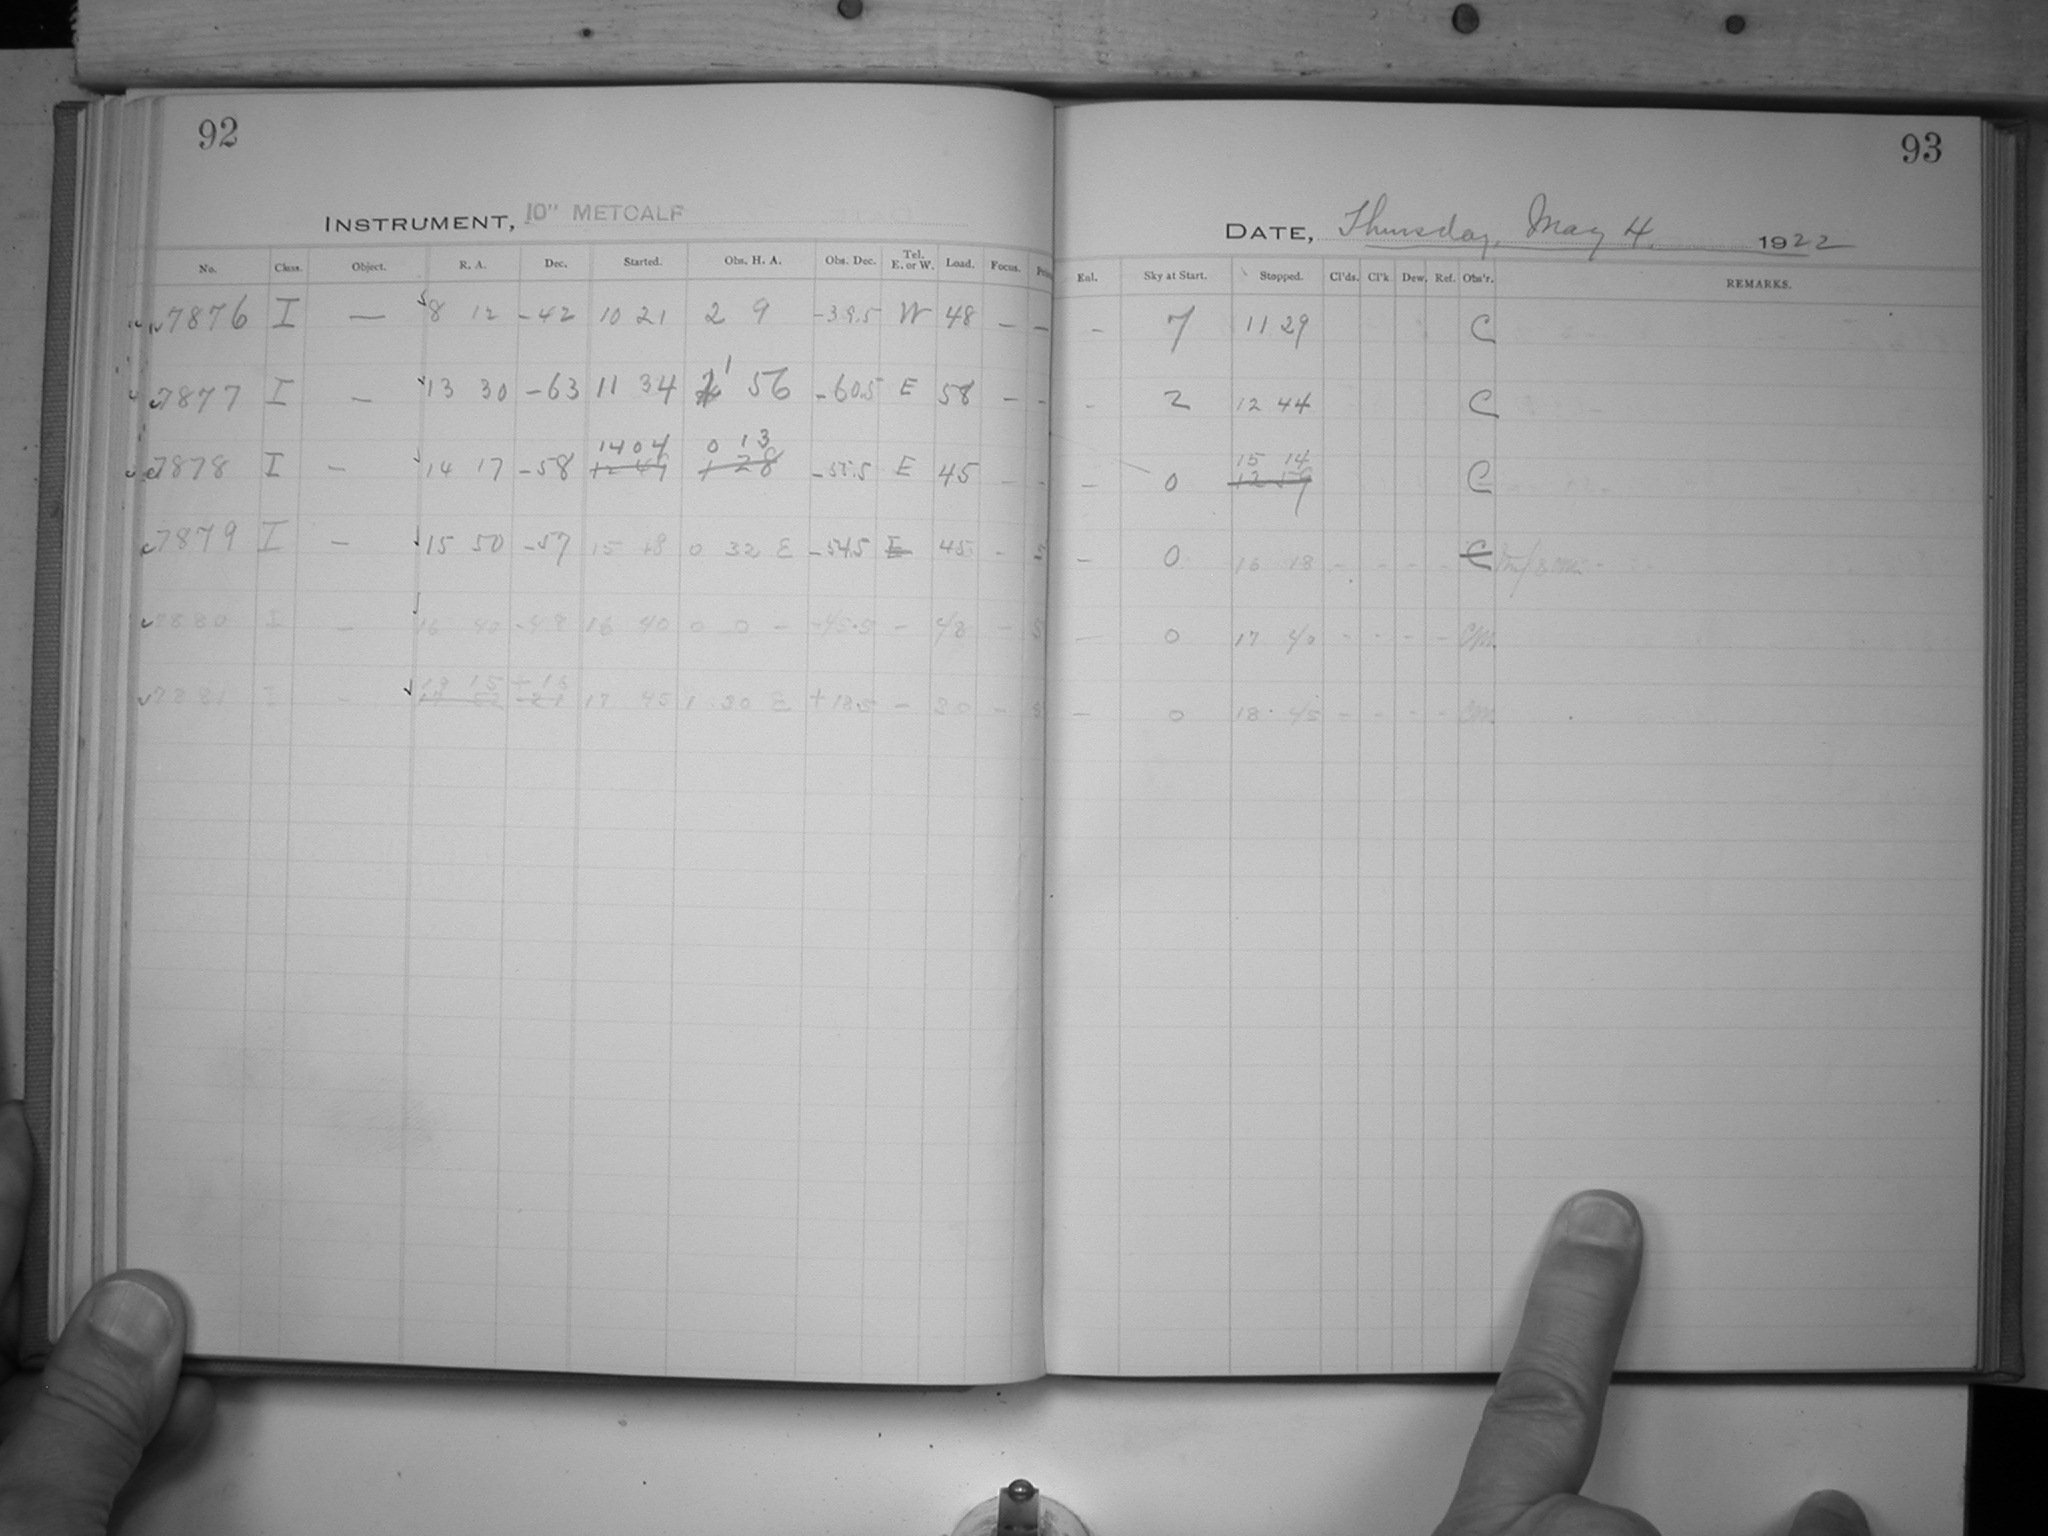 92
INSTRUMENT, 10" METCALF
No. Class. Object. R. A. Dec. Started. Obs. H. A. Obs. Dec. Tel. E. or W. Load. Focus.
7876 I — 8 12 -42 10 21 2 9 -39.5 W 48 — —
7877 I — 13 30 -63 11 34 1 56 -60.5 E 58 — —
14 04 0 13
7878 I — 14 17 -58 1 28 -55.5 E 45 — —
7879 I — 15 50 -57 15 18 0 32 E -54.5 E 45 - 5
7880 I — 16 40 -48 16 40 0 0 — -45.5 — 48 — 5
18 15 + 16
7881 I — 17 45 1 30 E +18.5 — 30 —
93
DATE, Thursday, May 4, 1922
Enl. Sky at Start. Stopped. Cl'ds. Cl'k Dew. Ref. Obs'r. REMARKS.
— 7 11 29 C
— 2 12 44 C
15 14
— 0 12 59 C
— 0 16 18 - - - - C
— 0 17 40 - - - - CM
— 0 18 45 - - - - CM